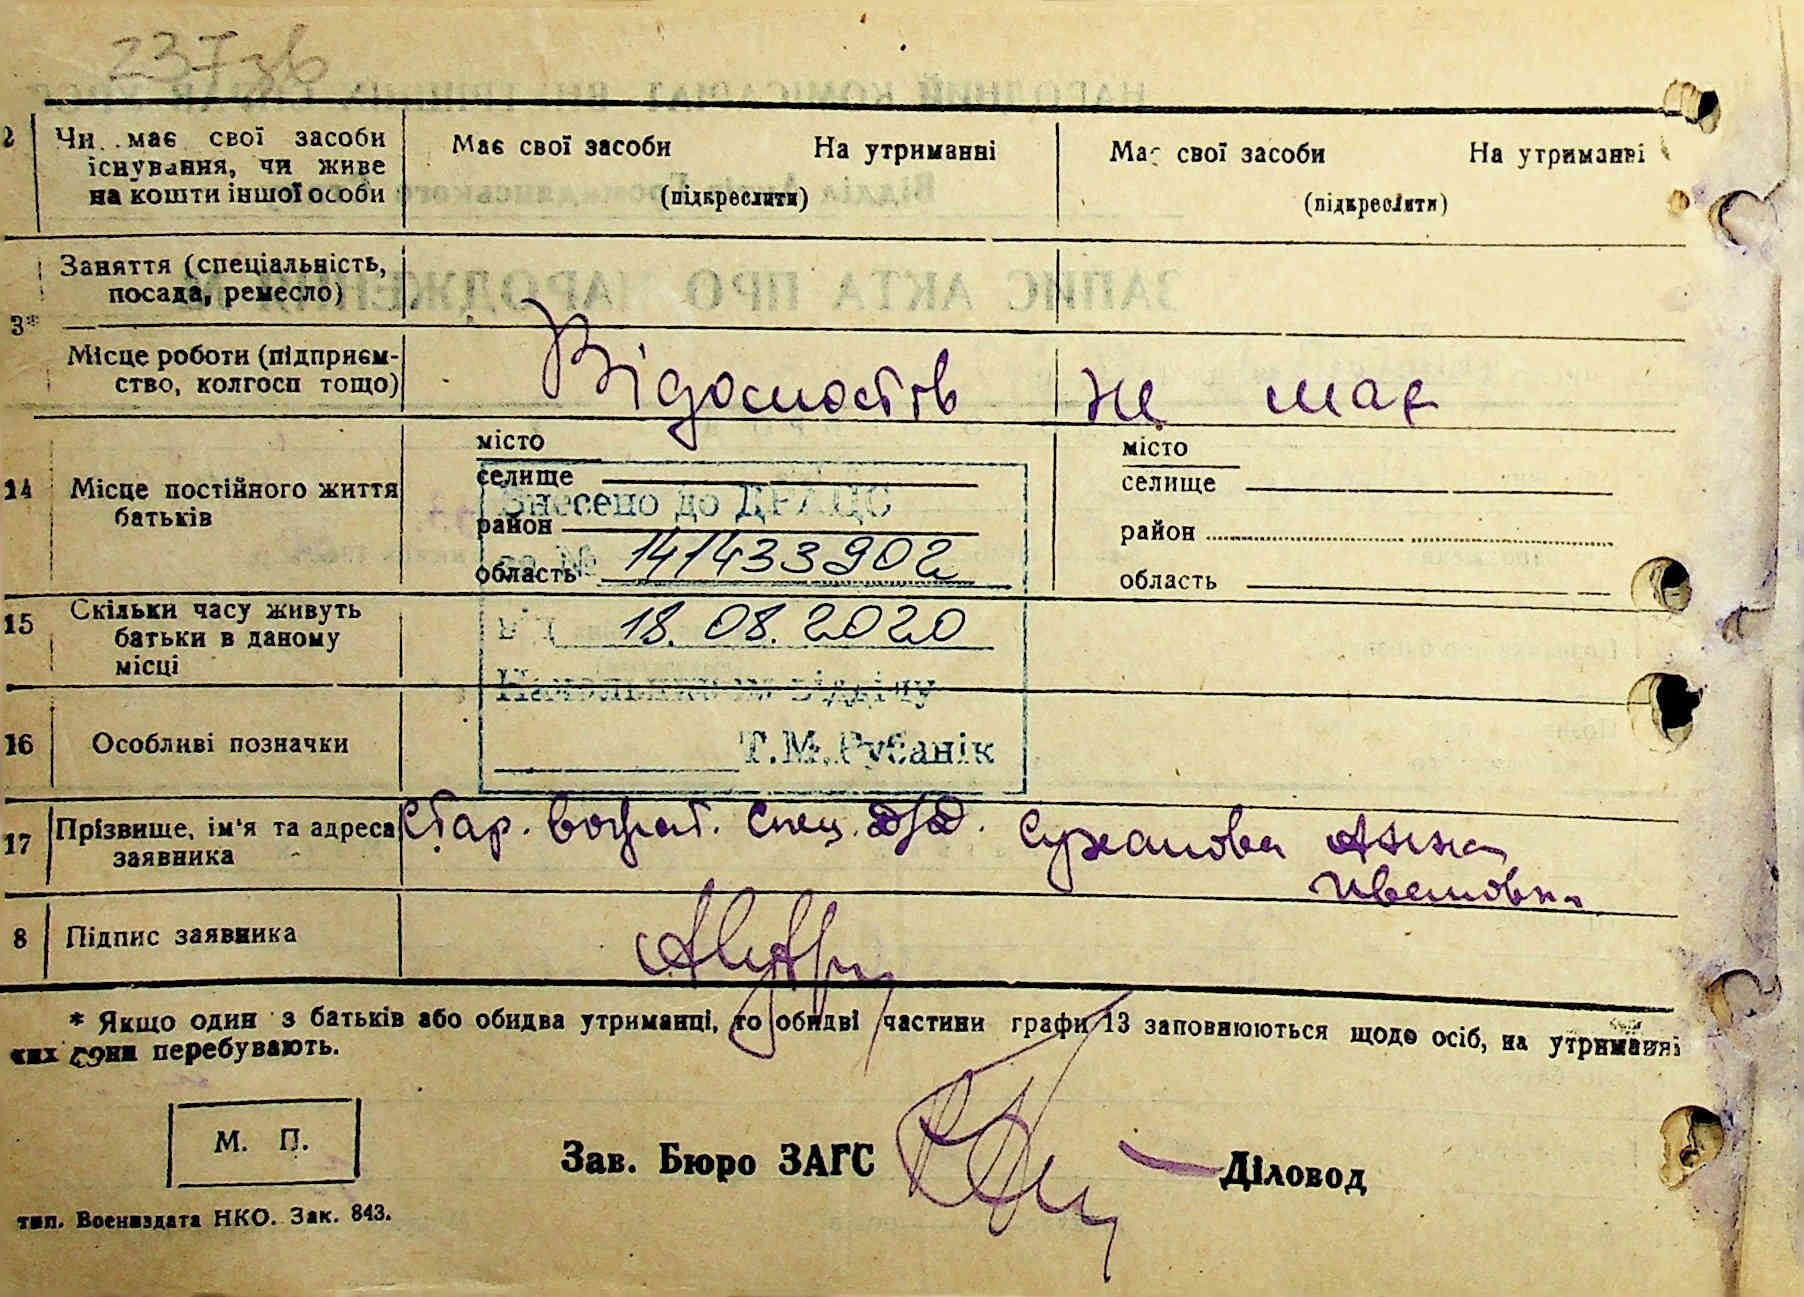 237зв
2 Чи має свої засоби існування, чи живе на кошти іншої особи
Має свої засоби На утриманні
(підкреслити)
Має свої засоби На утриманні
(підкреслити)
3*
Заняття (спеціальність, посада, ремесло)
Місце роботи (підприєм-
ство, колгосп тощо)
Відомостів не має
14 Місце постійного життя батьків
місто
селище
район
область
місто
селище
район
область
Внесено до ДРАЦС
за № 141433902
18.08.2020
Начальник відділу
Т.М.Рубанік
15 Скільки часу живуть батьки в даному місці
16 Особливі позначки
17 Прізвище, ім'я та адреса заявника
Стар. воспит. спец. Д/Д. Суханова Анна
Ивановна
8 Підпис заявника
* Якщо один з батьків або обидва утриманці, то обидві частини графи 13 заповнюються щодо осіб, на утриманні
яких вони перебувають.
М. П.
Зав. Бюро ЗАГС
Діловод
тип. Воениздата НКО. Зак. 843.